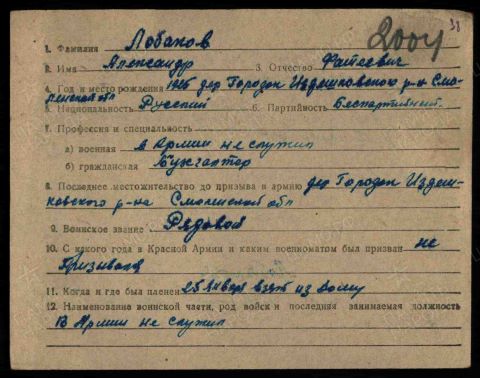 38
2004
1. Фамилия Лобанов
2. Имя Александр 3. Отчество Фатеевич
4. Год и место рождения 1925 дер Городок Издешковского р-н Смо-
ленской обл
5. Национальность Русский 6. Партийность Беспартийный
7. Профессия и специальность
а) военная в Армии не служил
б) гражданская Бухгалтер
8. Последнее местожительство до призыва в армию дер Городок Издеш-
ковского р-на Смоленской обл
9. Воинское звание Рядовой
10. С какого года в Красной Армии и каким военкоматом был призван не
Призывался
11. Когда и где был пленен 25 Января взят из дому
12. Наименование воинской части, род войск и последняя занимаемая должность
В Армии не служил